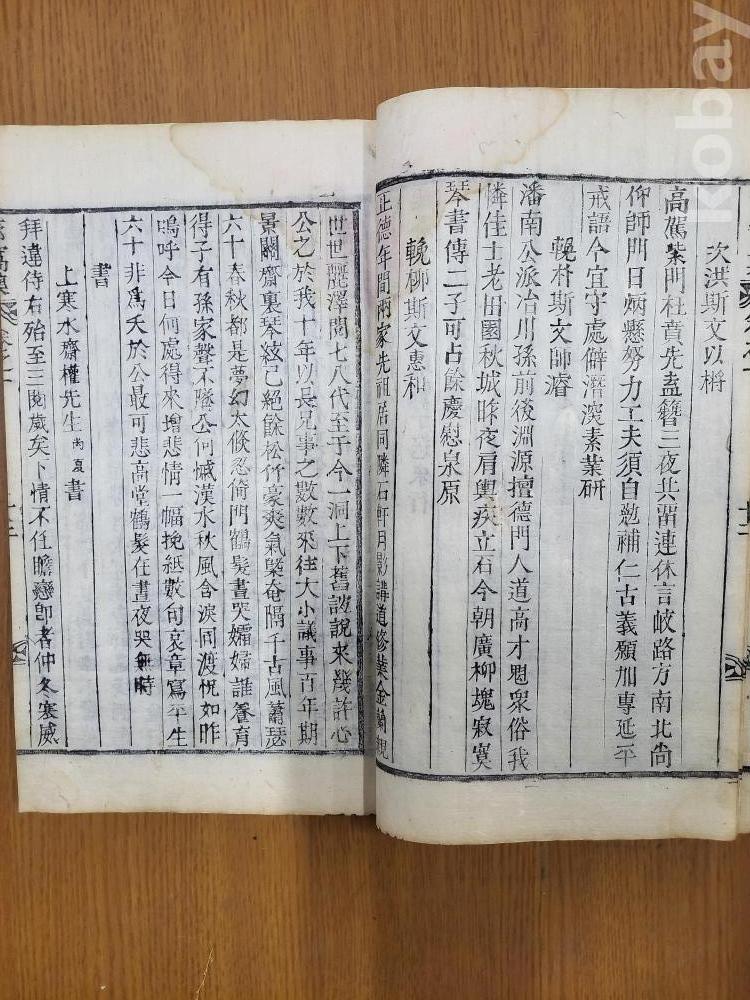 次洪斯文以稱
高駕柴門杜賁先盍簪三夜共畱連休言岐路方南北尙
仰師門日㤪懸努力工夫須自勉補仁古義願加專延平
戒語今宜守處僻潛深素業硏
輓朴斯文師濬
潘南公派冶川孫前後淵源擅德門人道高才恖衆俗我
憐佳士老田園秋城昨夜肩輿疾立石今朝廣柳塊寂寞
琴書傳二子可占餘慶慰泉原
輓柳斯文惠和
正德年間兩家先祖居同隣石軒月影講道修業金蘭
世世麗澤問七八代至于今一洞上下舊誼說來幾許心
公之於我十年以長兄事之數數來往大小議事百年期
景闌齋裏琴絃已絶餘松竹豪爽氣槩奄隔千古風蕭瑟
六十春秋都是夢幻太倏忽倚門鶴髮晝哭孀婦誰養育
得子有孫家聲不墜公何慽漢水秋風含淚同渡怳如昨
嗚呼今日何處得來增悲情一幅挽紙數句哀章寫平生
六十非爲夭於公最可悲高堂鶴髮在晝夜哭無時
書
上寒水齋權先生尙夏書
拜違侍右殆至三閱歲矣卜情不任瞻戀卽者仲冬寒威
kobay